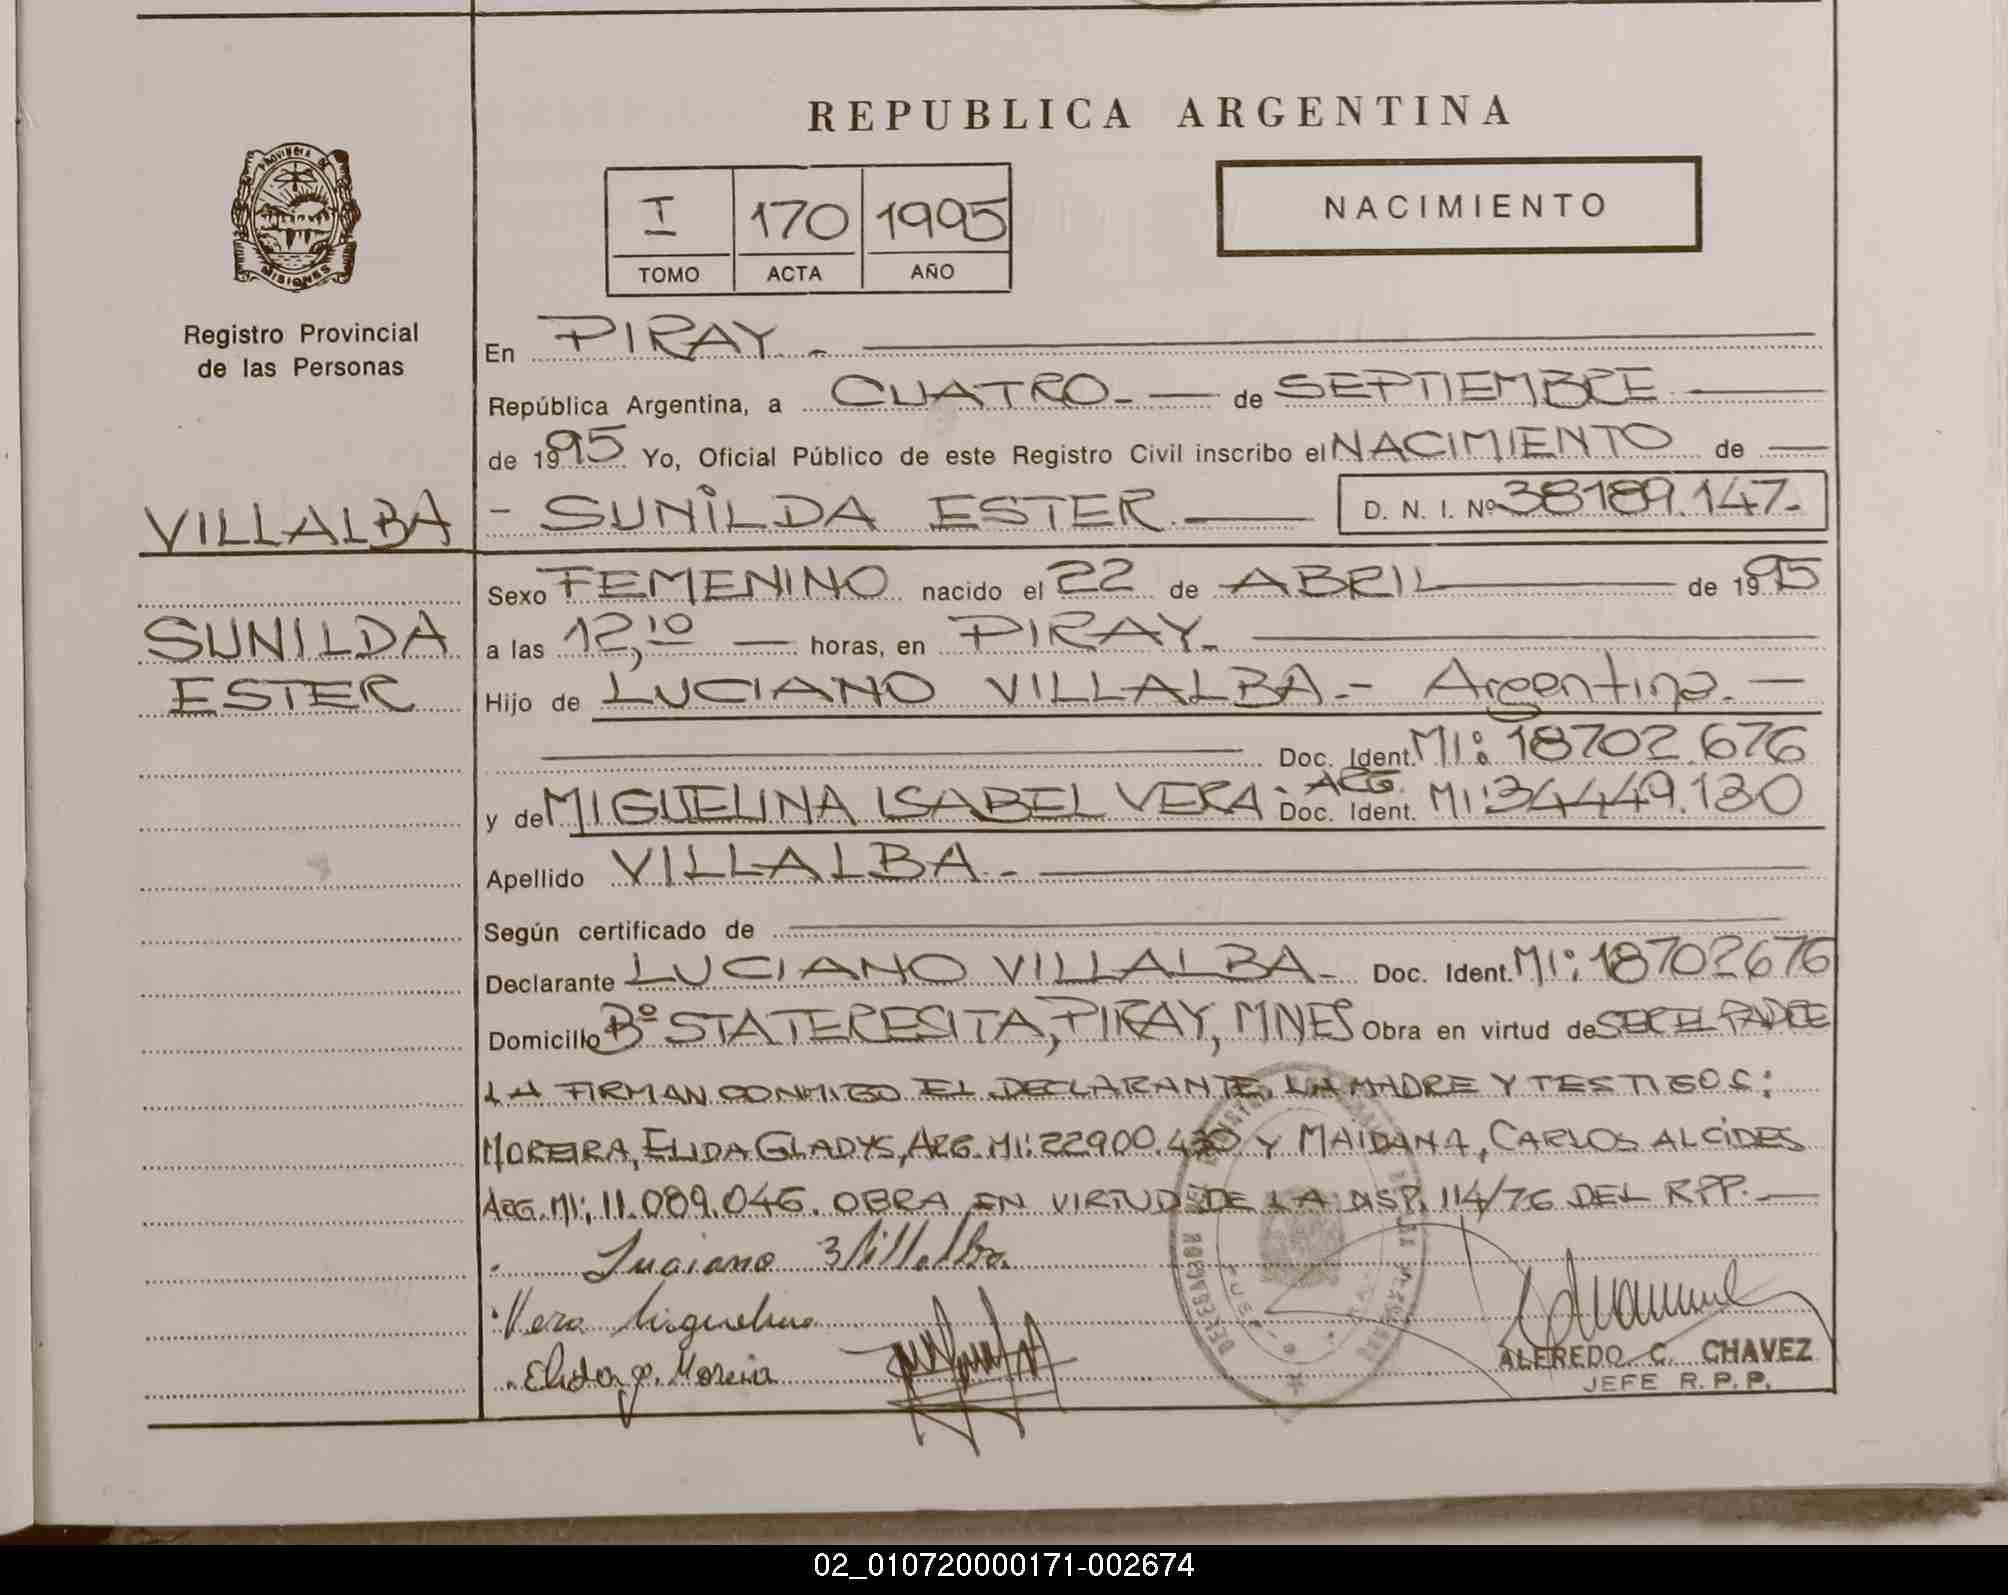 REPUBLICA ARGENTINA
PROVINCIA DE MISIONES
I 170 1995
TOMO ACTA AÑO
NACIMIENTO
Registro Provincial
de las Personas
En PIRAY.-
República Argentina, a CUATRO.- de SEPTIEMBRE
de 1995 Yo, Oficial Público de este Registro Civil inscribo el NACIMIENTO de
VILLALBA
- SUNILDA ESTER. D. N. I. Nº 38189.147.-
Sexo FEMENINO nacido el 22 de ABRIL de 1995
SUNILDA
a las 12,10 horas, en PIRAY.-
ESTER
Hijo de LUCIANO VILLALBA.- Argentina.-
Doc. Ident. MI: 18702.676
y de MIGUELINA ISABEL VERA - ARG. Doc. Ident. MI: 34449.130
Apellido VILLALBA.-
Según certificado de
Declarante LUCIANO VILLALBA.- Doc. Ident. MI: 18702676
Domicilio Bº STA TERESITA, PIRAY, MNES Obra en virtud de SER EL PADRE
LA FIRMAN CONMIGO EL DECLARANTE, LA MADRE Y TESTIGOS:
MOREIRA, ELIDA GLADYS, ARG. MI: 22900.430 Y MAIDANA, CARLOS ALCIDES
ARG. MI: 11.089.046. OBRA EN VIRTUD DE LA DISP. 114/76 DEL RPP.-
Luciano Villalba
Vera Miguelina
Elida g. Moreira
ALFREDO C. CHAVEZ
JEFE R. P. P.
02_010720000171-002674